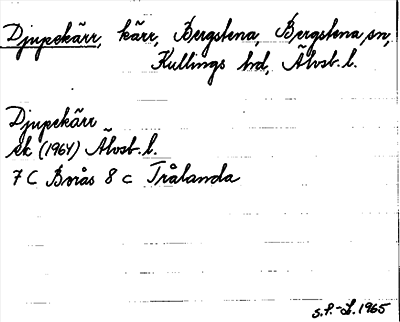 Djupekärr, kärr, Bergstena, Bergstena sn,
Kullings hd, Älvsb. l.
Djupekärr
ek (1964) Älvsb. l.
7 C Borås 8 c Trålanda
s.f. -L. 1965